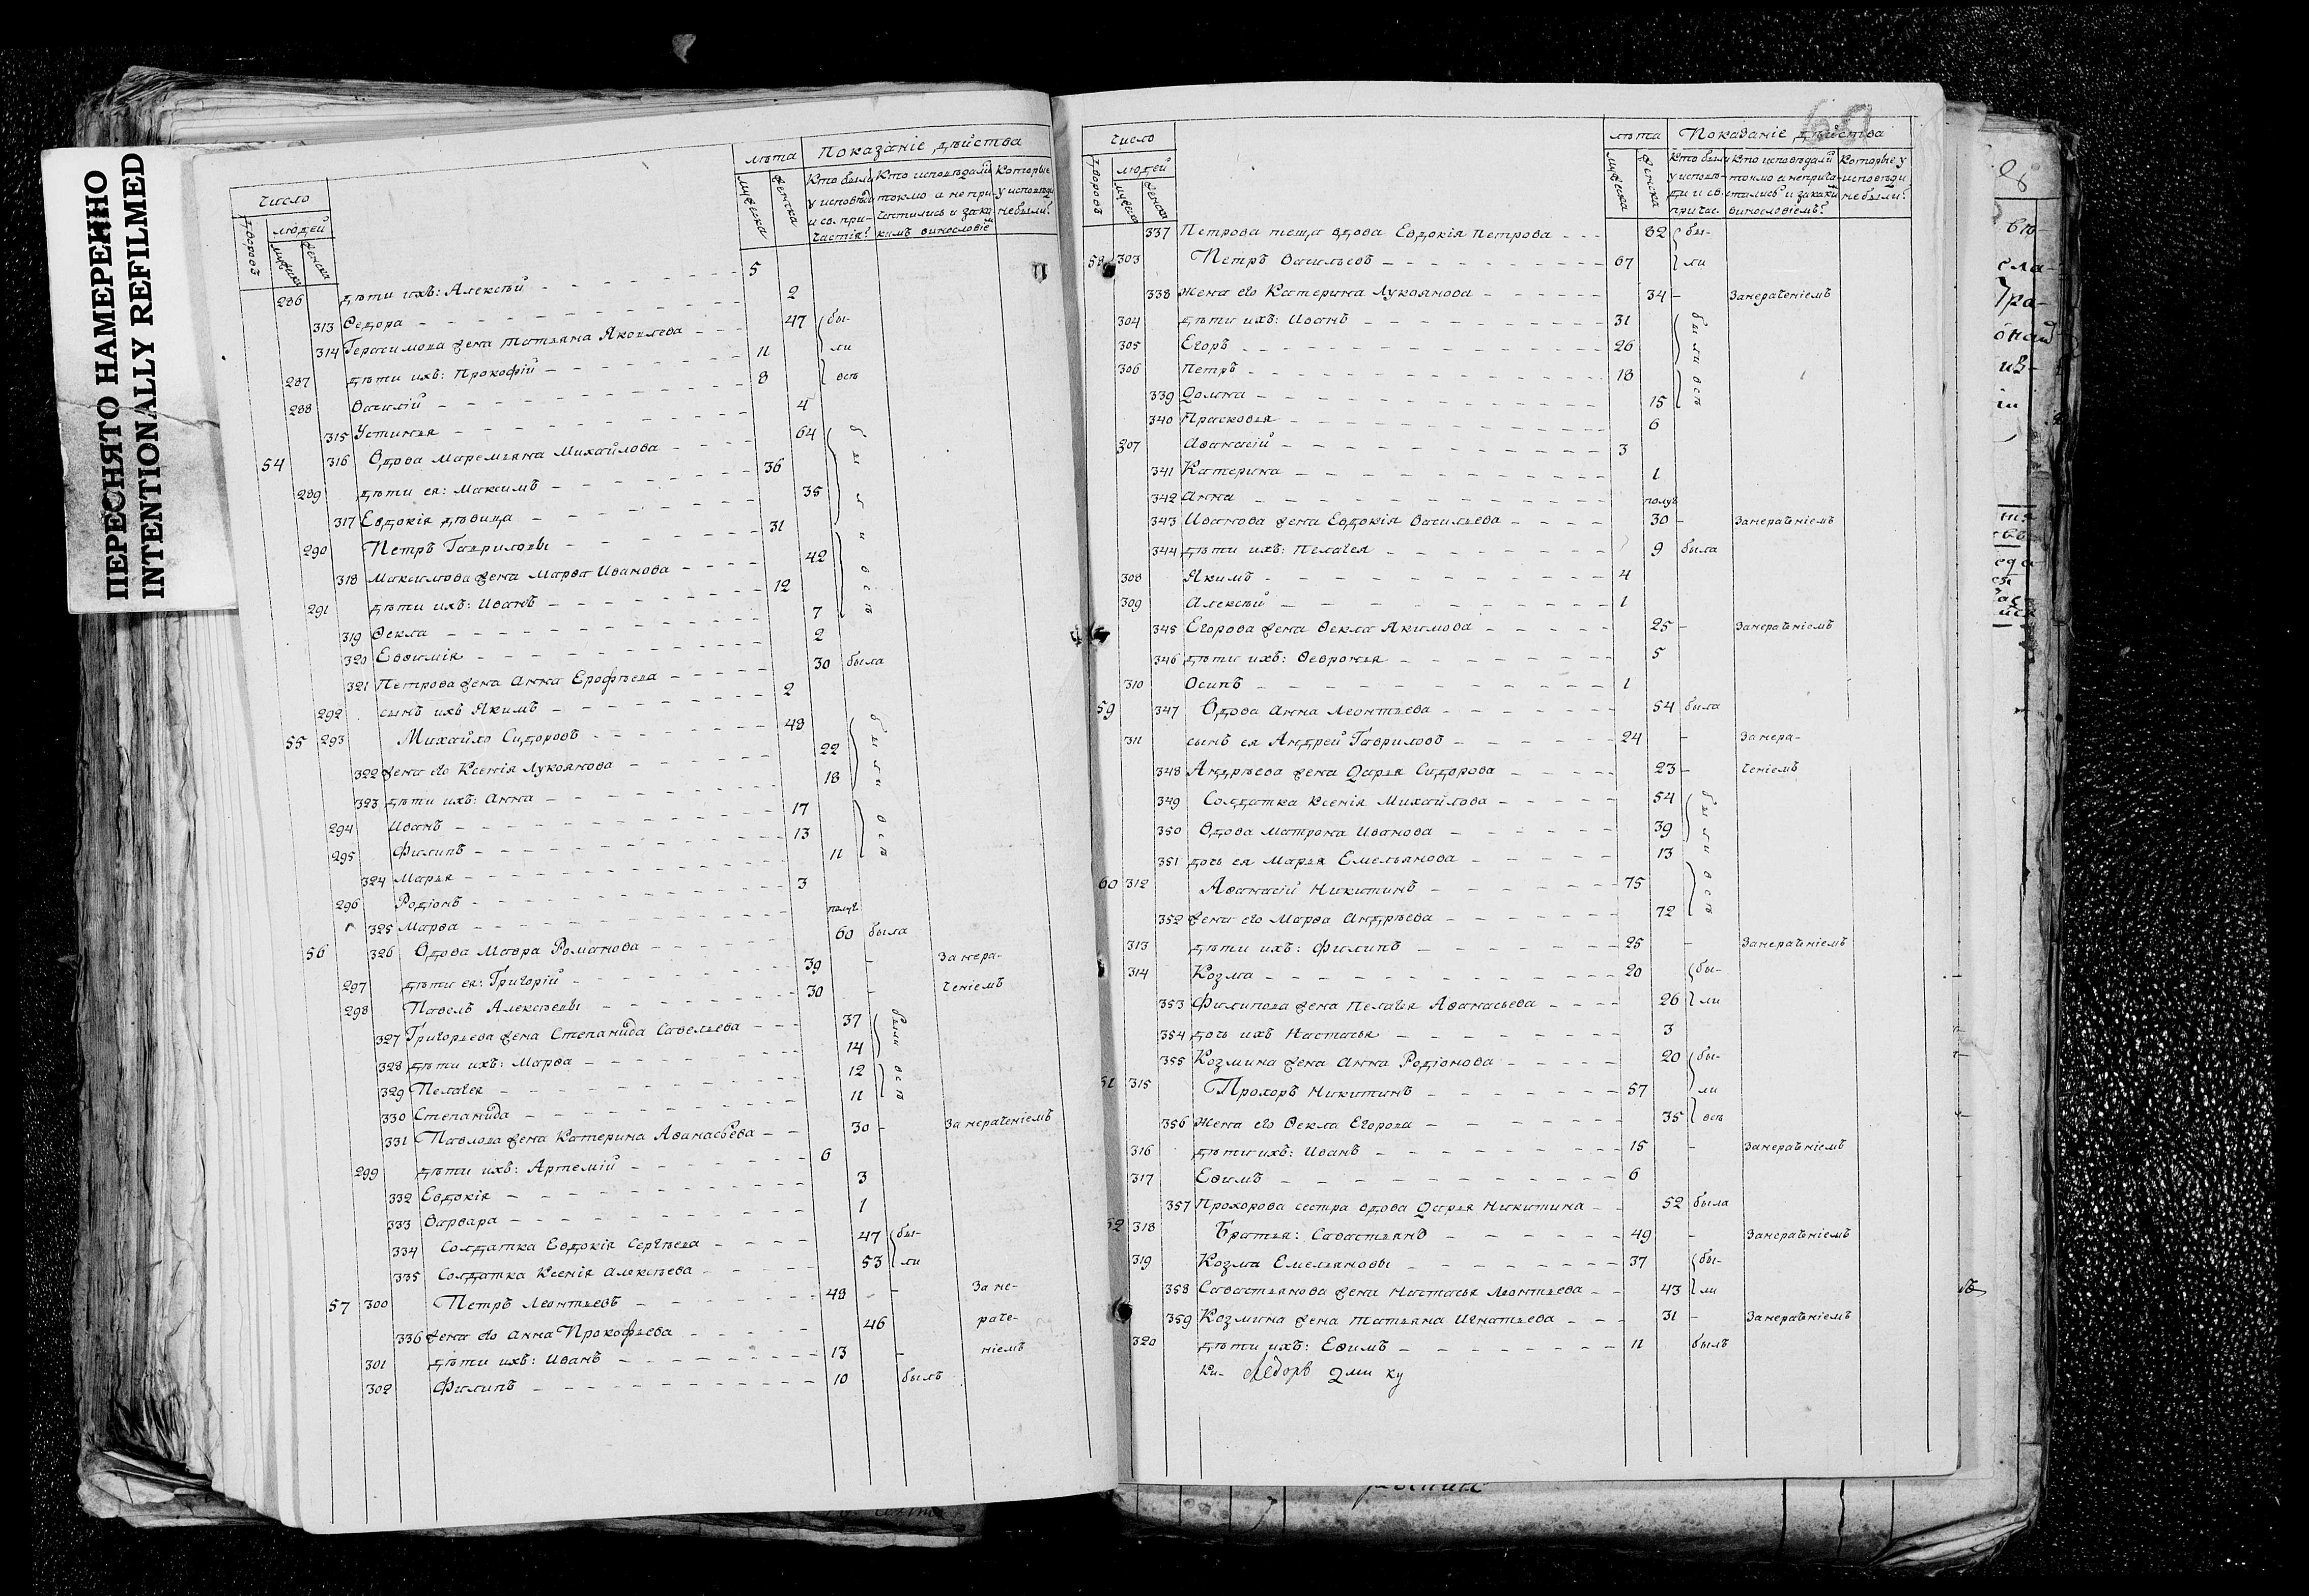 ПЕРЕСНЯТО НАМЕРЕННО
INTENTIONALLY REFILMED
число
дворовъ
людей
мужеска
женска
лѣта
мужеска
женска
Показаніе дѣйства
Кто были у исповѣди и св. причастія?
Кто исповѣдали токмо а не причастились и заки­мъ винословіе
Которые у исповѣди не были?
286 дѣти ихъ: Алексѣй 5
313 Ѳедора 2
314 Герасимова жена Татьяна Яковлева 47 бы-
287 дѣти ихъ: Прокофій 11 ли
288 Василій 8 всѣ
315 Устинья 4
54 316 Вдова Маремьяна Михайлова 64 бы
289 дѣти ея: Максимъ 36
317 Евдокія дѣвица 35 л
290 Петръ Гавриловы 31 и
318 Максимова жена Марѳа Иванова 42 всѣ
291 дѣти ихъ: Иванъ 12
319 Ѳекла 7
320 Евѳимія 2
321 Петрова жена Анна Ерофѣева 30 была
292 сынъ ихъ Якимъ 2
55 293 Михайло Сидоровъ 48 были
322 жена его Ксенія Лукоянова 22
323 дѣти ихъ: Анна 18
294 Иванъ 17 всѣ
295 Филипъ 13
324 Марья 11
296 Родіонъ 3
325 Марѳа полуг.
56 326 Вдова Мавра Романова 60 была
297 дѣти ея: Григорій 39 - За нера-
298 Павелъ Алексѣевы 30 - ченіемъ
327 Григорьева жена Степанида Савельева 37 были
328 дѣти ихъ: Марѳа 14
329 Пелагея 12 всѣ
330 Степанида 11
331 Павлова жена Катерина Аѳанасьева 30 - За нераченіемъ
299 дѣти ихъ: Артемій 6
332 Евдокія 3
333 Варвара 1
334 Солдатка Евдокія Сергѣева 47 бы-
335 Солдатка Ксенія Алексѣева 53 ли
57 300 Петръ Леонтьевъ 48 - За не-
336 жена его Анна Прокофьева 46 раче-
301 дѣти ихъ: Иванъ 13 - ніемъ
302 Филипъ 10 былъ
60
число
дворовъ
людей
мужеска
женска
лѣта
мужеска
женска
Показаніе дѣйства
Кто были у исповѣди и св. причас.
Кто исповѣдали токмо а не причастились и закаки­мъ винословіемъ?
Которые у исповѣди не были?
337 Петрова теща вдова Евдокія Петрова 82 бы-
58 303 Петръ Васильевъ 67 ли
338 жена его Катерина Лукоянова 34 - Занераченіемъ
304 дѣти ихъ: Иванъ 31 были
305 Егоръ 26
306 Петръ 18 всѣ
339 Домна 15
340 Прасковья 6
307 Аѳанасій 3
341 Катерина 1
342 Анна полуг
343 Иванова жена Евдокія Васильева 30 - Занераченіемъ
344 дѣти ихъ: Пелагея 9 была
308 Якимъ 4
309 Алексѣй 1
345 Егорова жена Ѳекла Якимова 25 - Занераченіемъ
346 дѣти ихъ: Ѳевронья 5
310 Осипъ 1
59 347 Вдова Анна Леонтьева 54 была
311 сынъ ея Андрей Гавриловъ 24 - Занера-
348 Андрѣева жена Дарья Сидорова 23 - ченіемъ
349 Солдатка Ксенія Михайлова 54 были
350 Вдова Матрона Иванова 39
351 дочь ея Марья Емельянова 13
60 312 Аѳанасій Никитинъ 75 всѣ
352 жена его Марѳа Андрѣева 72
313 дѣти ихъ: Филипъ 25 - Занераченіемъ
314 Козма 20 бы-
353 Филипова жена Пелагея Аѳанасьева 26 ли
354 дочь ихъ Настасья 3
355 Козмина жена Анна Родіонова 20 бы-
61 315 Прохоръ Никитинъ 57 ли
356 Жена его Ѳекла Егорова 35 всѣ
316 дѣти ихъ: Иванъ 15 - Занераченіемъ
317 Евѳимъ 6
357 Прохорова сестра вдова Дарья Никитина 52 была
62 318 Братья: Савастьянъ 49 - Занераченіемъ
319 Козма Емельяновы 37 бы-
358 Савастьянова жена Настасья Леонтьева 43 ли
359 Козмина жена Татьяна Игнатьева 31 - Занераченіемъ
320 дѣти ихъ: Евѳимъ 11 былъ